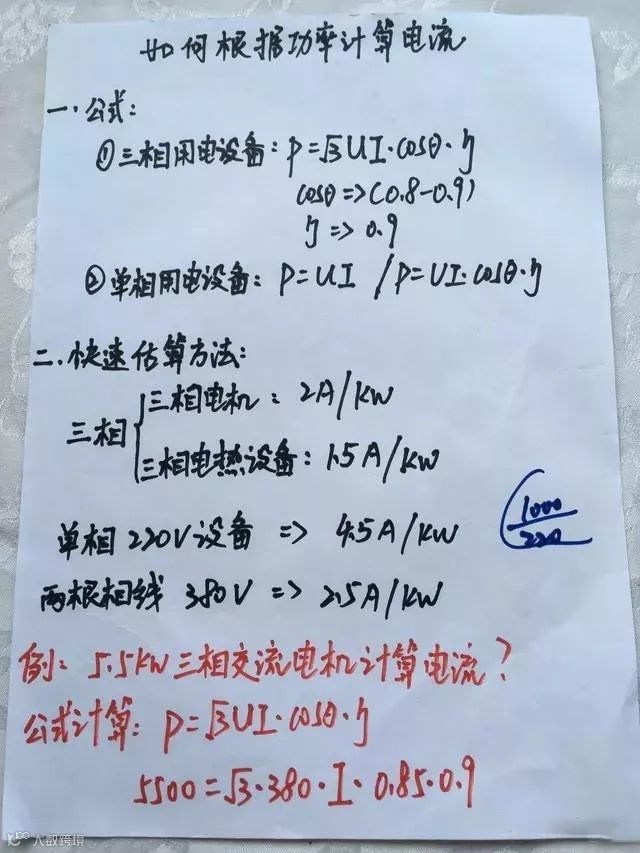 如何根据功率计算电流
一.公式:
①三相用电设备:P=√3UI·cosθ·η
cosθ=>(0.8-0.9)
η=>0.9
②单相用电设备:P=UI /P=UI·cosθ·η
二.快速估算方法:
三相{三相电机:2A/KW
三相电热设备:1.5A/KW
单相220V设备=>4.5A/KW
(1000/220
两根相线 380V=>2.5A/KW
例:5.5KW三相交流电机计算电流?
公式计算:P=√3UI·cosθ·η
5500=√3·380·I·0.85·0.9
人数跨境